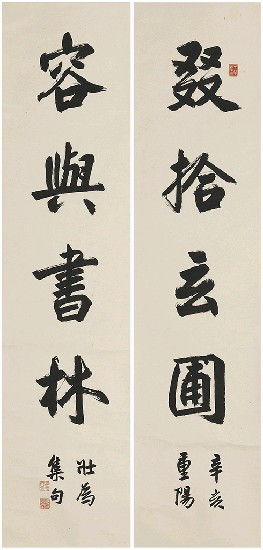 叕拾玄圃
辛亥
重陽
容與書林
壯為
集句